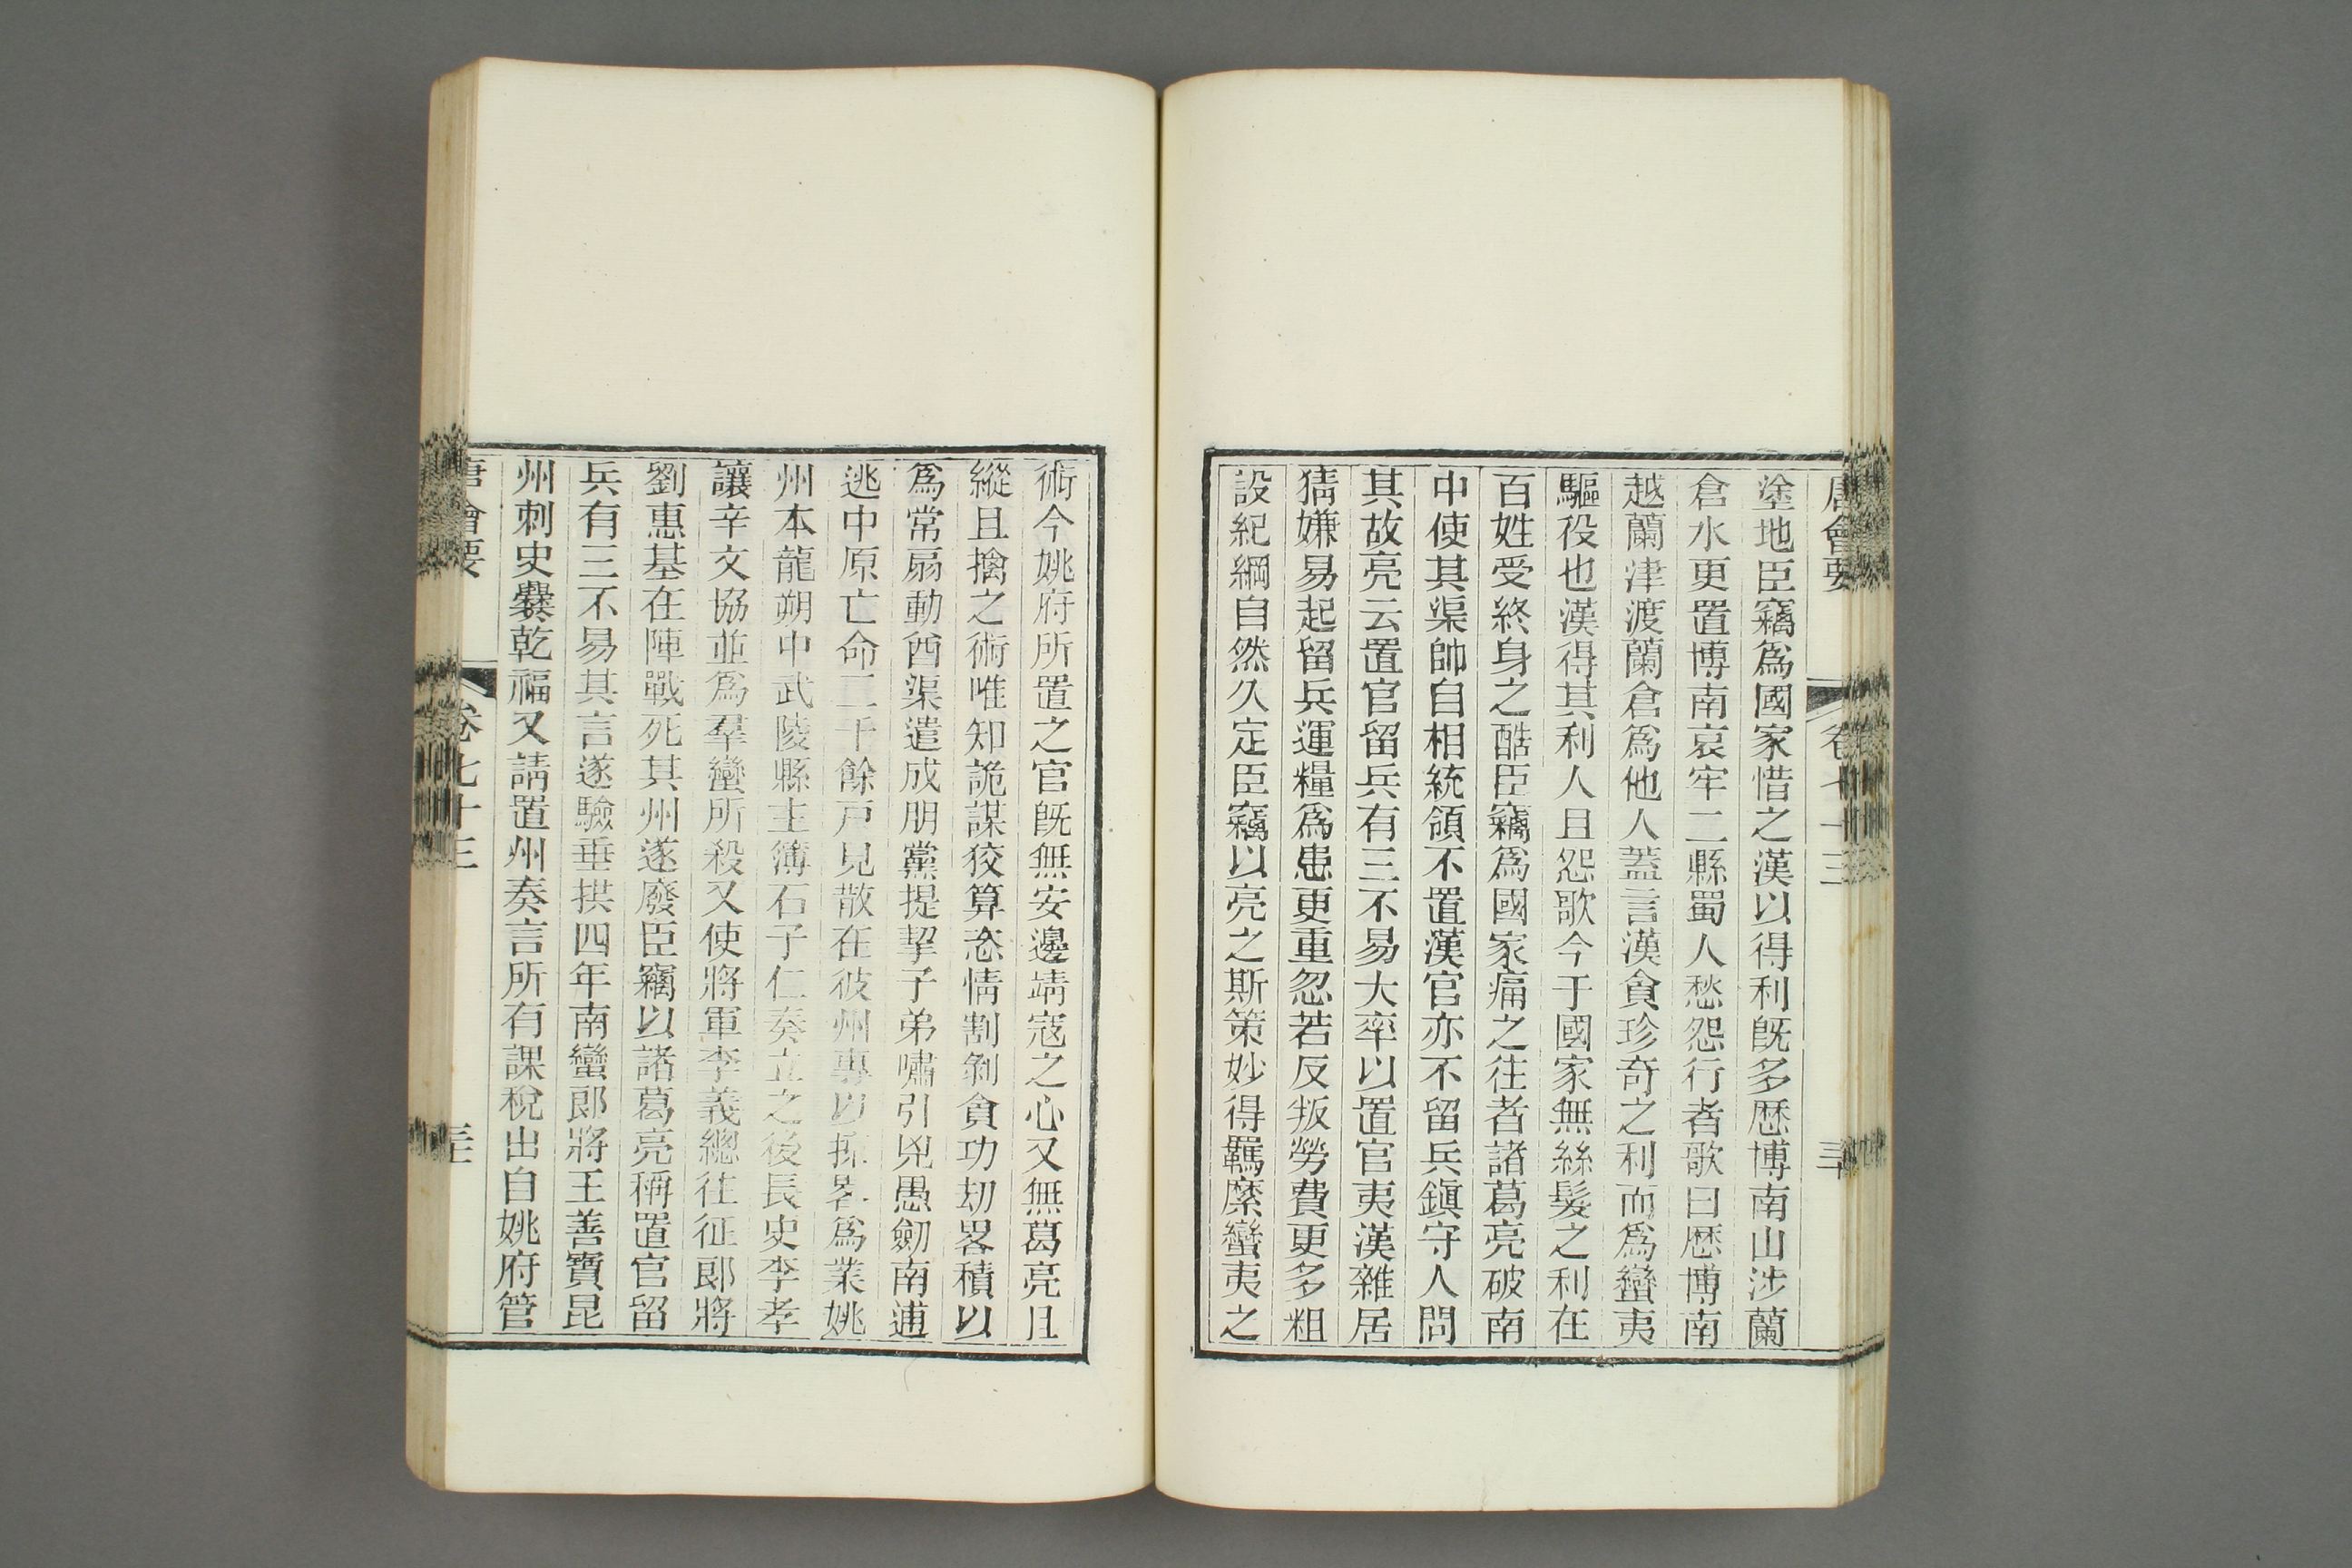 唐會要 卷七十三
塗地臣竊爲國家惜之漢以得利旣多歷博南山涉蘭
倉水更置博南哀牢二縣蜀人愁怨行者歌曰歷博南
越蘭津渡蘭倉爲他人蓋言漢貪珍奇之利而爲蠻夷
驅役也漢得其利人且怨歌今于國家無絲髮之利在
百姓受終身之酷臣竊爲國家痛之往者諸葛亮破南
中使其渠帥自相統領不置漢官亦不留兵鎭守人問
其故亮云置官留兵有三不易大率以置官夷漢雜居
猜嫌易起留兵運糧爲患更重忽若反叛勞費更多粗
設紀綱自然久定臣竊以亮之斯策妙得羈縻蠻夷之
術今姚府所置之官旣無安邊靖寇之心又無葛亮且
縱且擒之術唯知詭謀狡算恣情割剝貪功劫畧積以
爲常扇動酋渠遣成朋黨提挈子弟嘯引兇愚劒南逋
逃中原亡命二千餘戸見散在彼州專以掠畧爲業姚
州本龍朔中武陵縣主簿石子仁奏立之後長史李孝
讓辛文協並爲羣蠻所殺又使將軍李義總往征郞將
劉惠基在陣戰死其州遂廢臣竊以諸葛亮稱置官留
兵有三不易其言遂驗垂拱四年南蠻郞將王善寶昆
州刺史爨乾福又請置州奏言所有課稅出自姚府管
唐會要 卷七十三